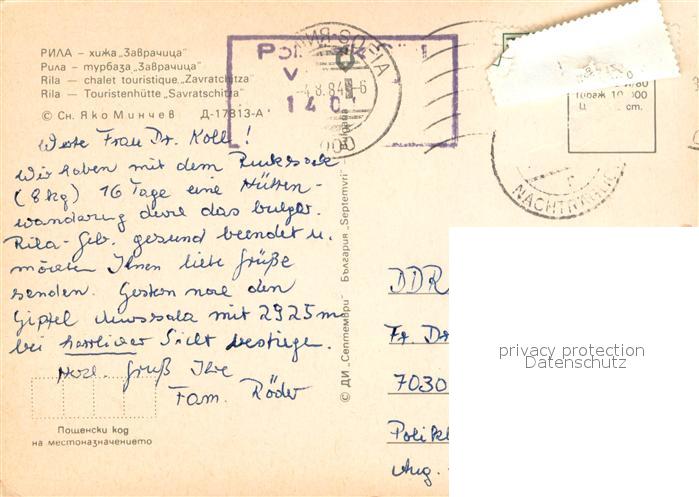 РИЛА – хижа „Заврачица"
Рила – турбаза „Заврачица"
Rila – chalet touristique „Zavratchitza"
Rila – Touristenhütte „Savratschitza"
© Сн. Яко Минчев Д-17813-А
Werte Frau Dr. Koll !
Wir haben mit dem Rucksack
(8 kg) 16 Tage eine Hütten-
wanderung durch das bulgar.
Rila-Geb. gesund beendet u.
möchten Ihnen liebe Grüße
senden. Gestern noch den
Gipfel Mussala mit 2925 m
bei herrlicher Sicht bestiegen.
Herzl. Gruß Ihre
Fam. Röder
Пощенски код
на местоназначението
© ДИ „Септември" България „Septemvri"
СОФИЯ
4.8.84
1000
140
Тираж 10 000
Ц. ст.
NACHTRÄGLI
DDR
Fr. Dr.
7030
Polikl
Aug.
privacy protection
Datenschutz